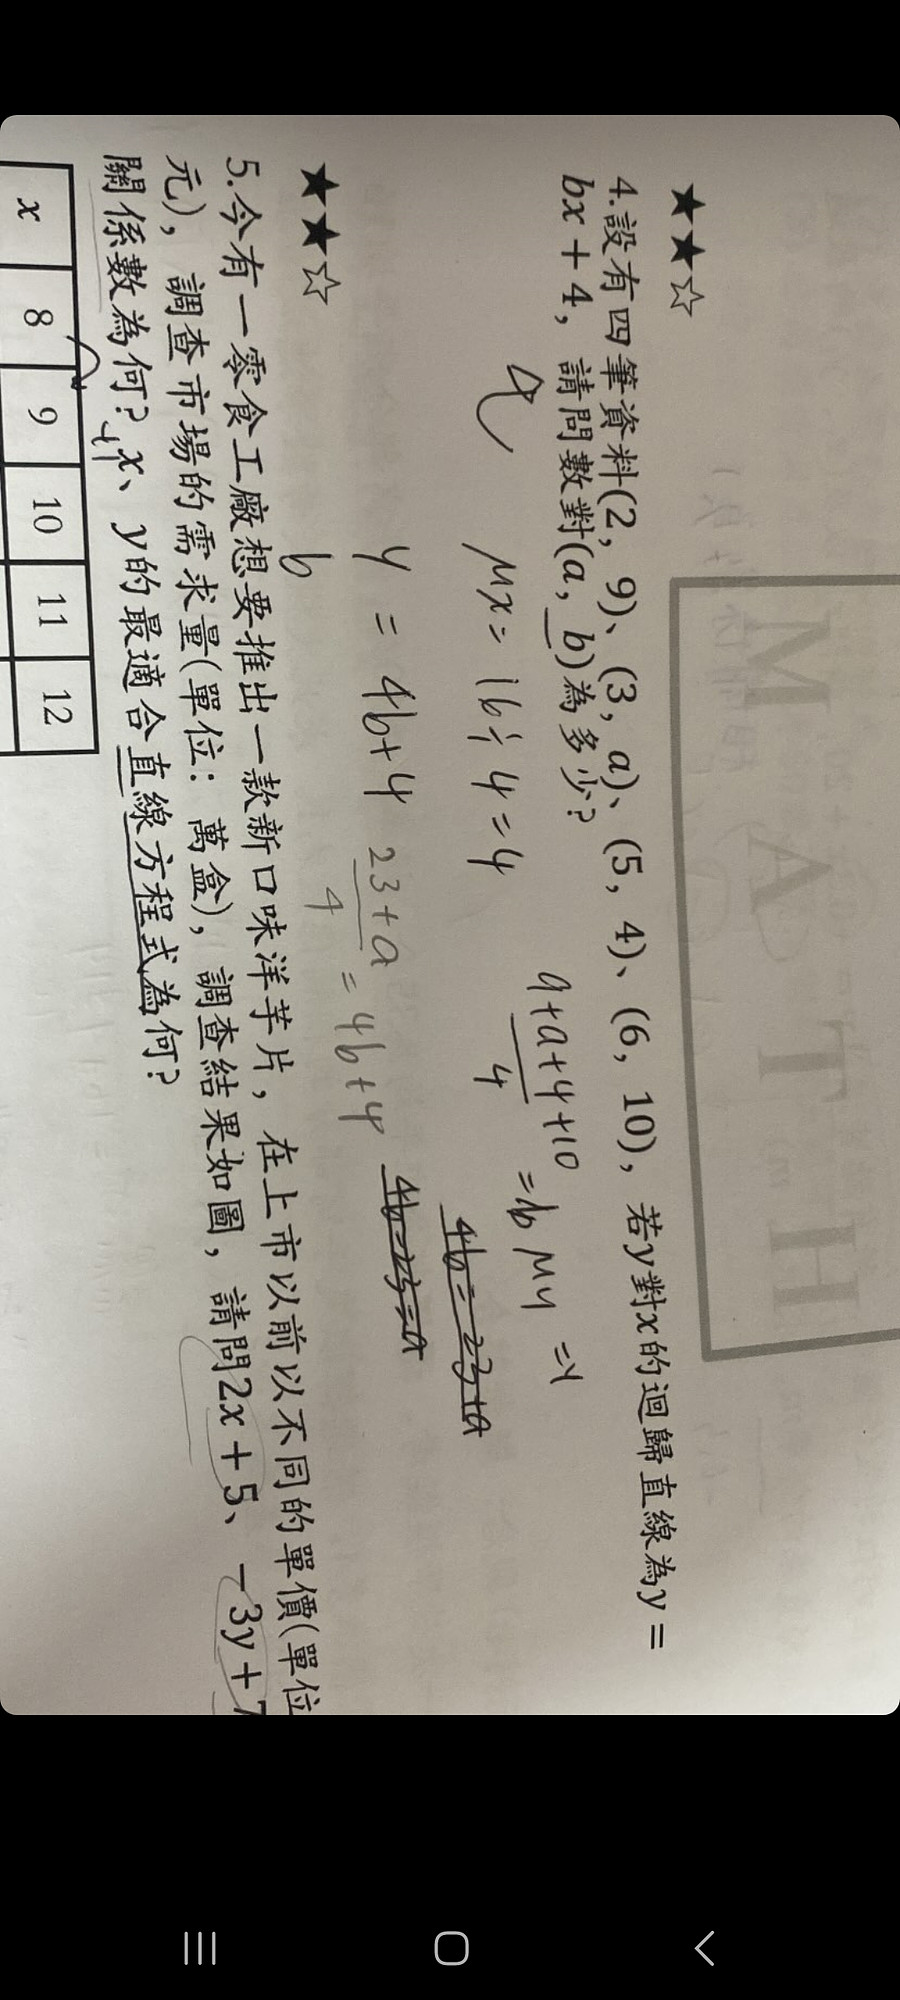 MATH
★★☆
4.設有四筆資料(2, 9)、(3, a)、(5, 4)、(6, 10), 若y對x的迴歸直線為y =
bx + 4, 請問數對(a, b)為多少?
9+a+4+10
4
μy = y
μx = 16 ÷ 4 = 4
y = 4b+4
23+a
4
= 4b+4
b
★★☆
5.今有一零食工廠想要推出一款新口味洋芋片, 在上市以前以不同的單價(單位
元), 調查市場的需求量(單位: 萬盒), 調查結果如圖, 請問2x + 5、−3y + 7
關係數為何? x、y的最適合直線方程式為何?
x 8 9 10 11 12